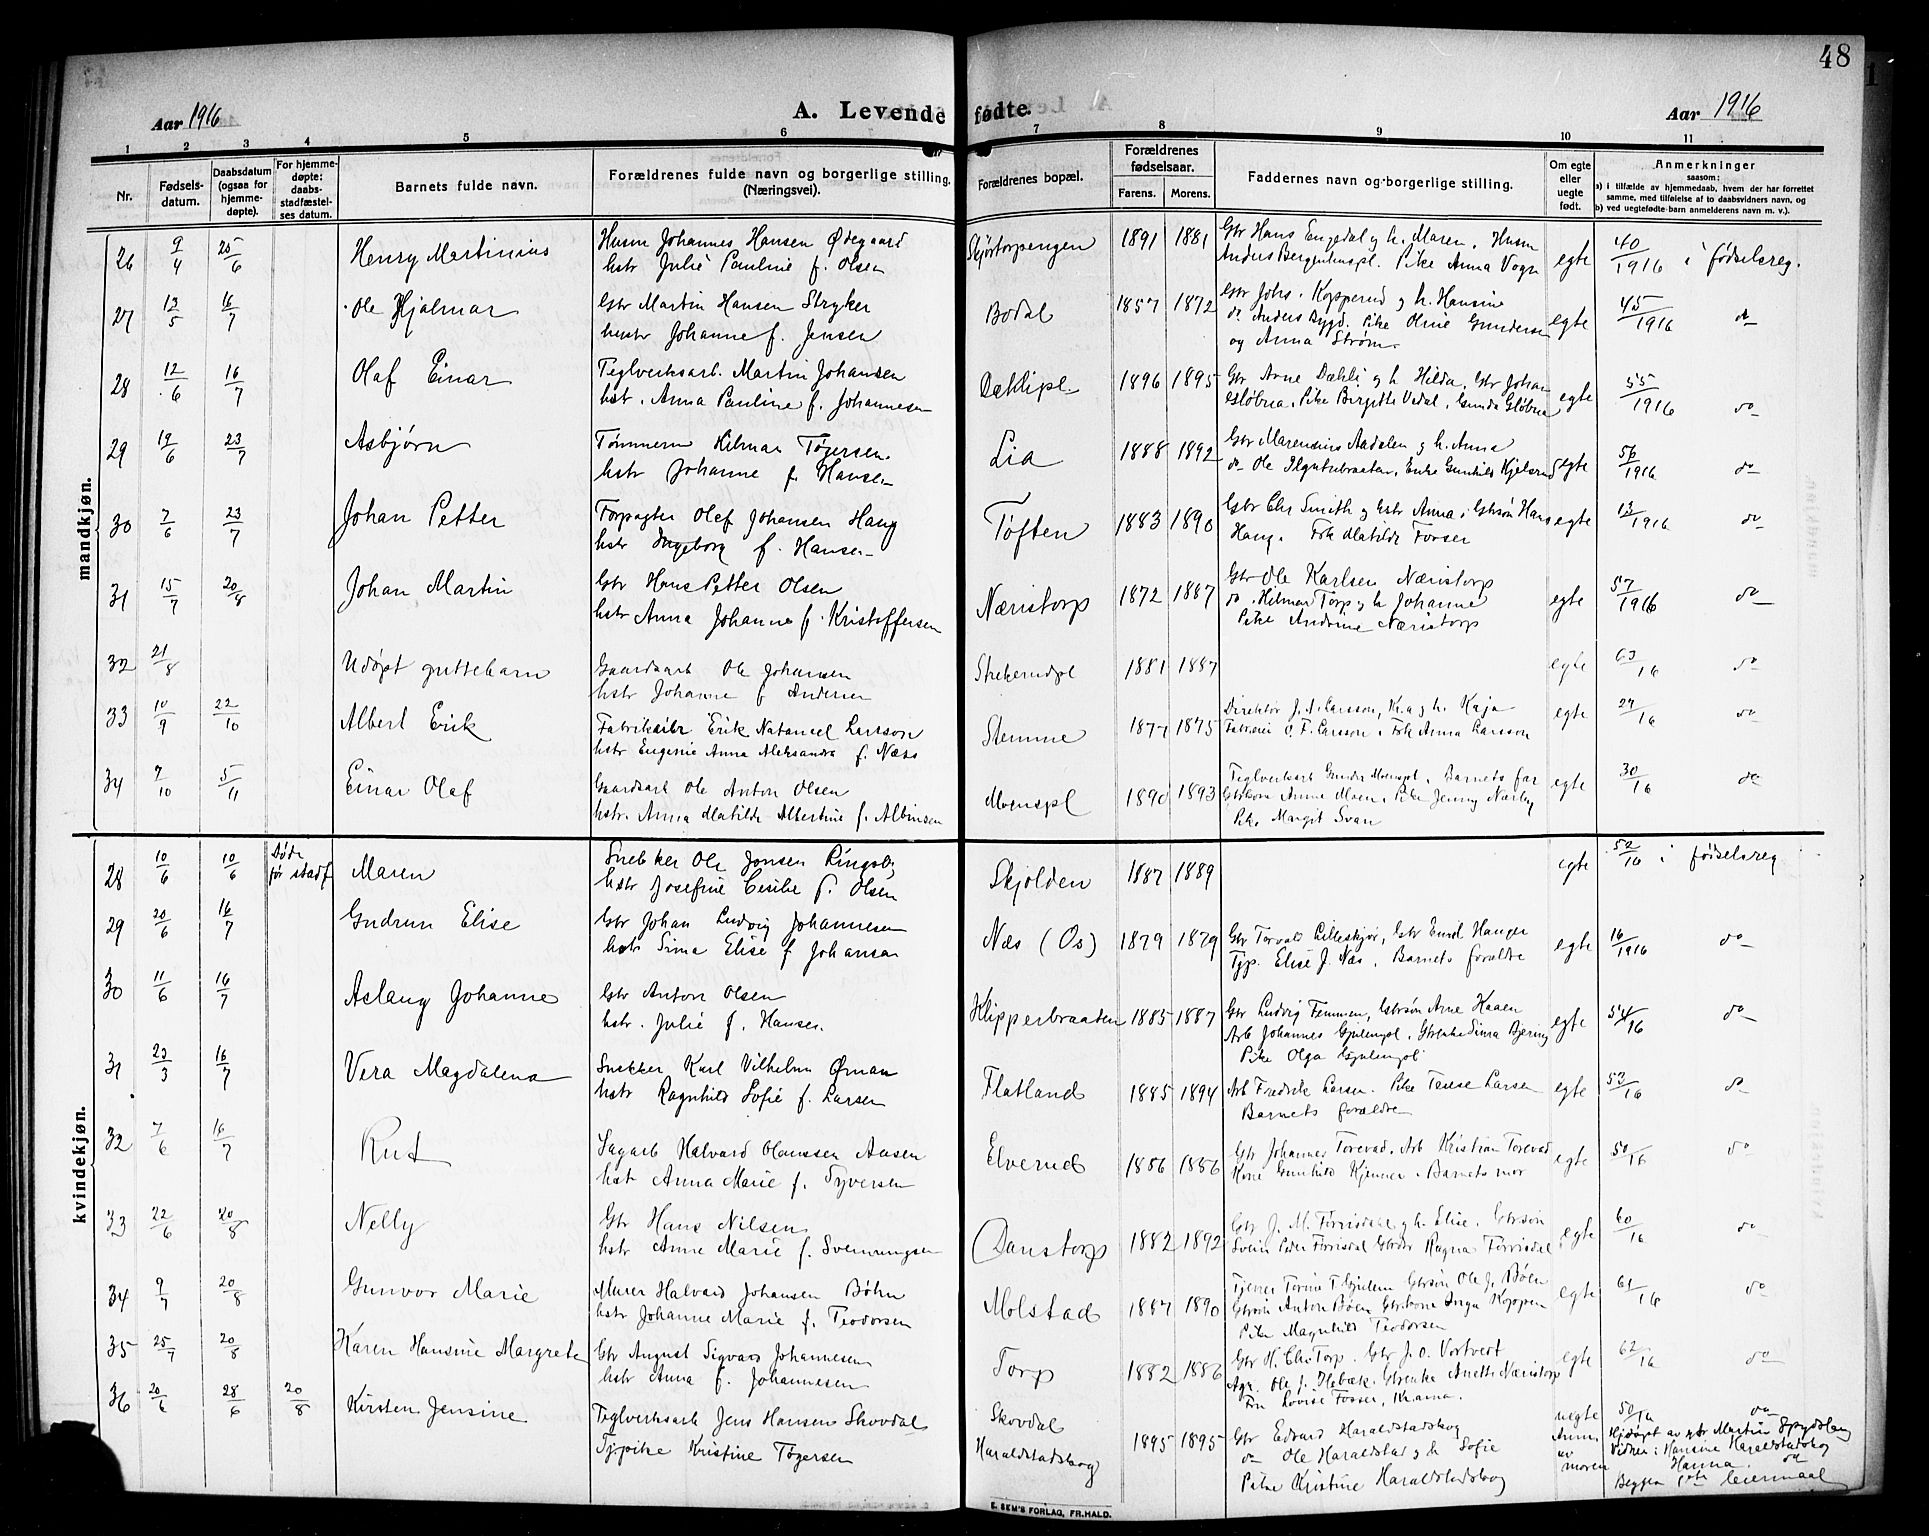 48
Aar 1916
A. Levende fødte.
Aar 1916
1 2 3 4 5 6 7 8 9 10 11
Nr.
Fødsels-
datum.
Daabsdatum
(ogsaa for
hjemme-
døpte).
For hjemme-
døpte:
daabs-
stadfæstel-
ses datum.
Barnets fulde navn.
Forældrenes fulde navn og borgerlige stilling.
(Næringsvei).
Forældrenes bopæl.
Forældrenes
fødselsaar.
Farens. Morens.
Faddernes navn og borgerlige stilling.
Om egte
eller
uegte
født.
Anmerkninger
saasom:
a) i tilfælde av hjemmedaab, hvem der har forrettet
samme, med tilføielse af to daabsvidners navn, og
b) ved uegtefødte barn anmelderens navn m. v.).
mandkjøn.
26 9/4 25/6 Henry Martinius
Husm Johannes Hansen Ødegaard
hstr Julie Pauline f. Olsen
Skjörtorpengen 1891 1881
Gbr Hans Engedal og h. Maren. Husm
Anders Bergenhuspl. Pike Anna Vogn
egte 40/1916 i fødselsreg.
27 12/5 16/7 Ole Hjalmar
Gbr Martin Hansen Stryker
hustr Johanne f. Jensen
Bodal 1857 1872
Gbr Johs. Kopperud og h. Hansine
do Anders Bygd. Pike Oline Gundersen
og Anna Strøm.
egte 45/1916 do
28 12/6 16/7 Olaf Einar
Teglverksarb. Martin Johansen
hst. Anna Pauline f. Johannesen
Dæhlipl. 1896 1895
Gbr Arne Dæhli og h Hilda. Gbr Johan
Gløbua. Pike Birgitte Vedal, Gunda Gløbua
egte 55/1916 do
29 19/6 23/7 Asbjørn
Tømmerm Hilmar Tøgersen
hstr Johanne f. Hansen
Lia 1888 1892
Gbr Marensius Aadalen og h. Anna
do Ole
egte 56/1916 do
30 7/6 23/7 Johan Petter
Forpagter Olef Johansen Haug
hstr Ingeborg f. Hansen
Tøften 1883 1890
Gbr Chr Smith og hstr Anna, Gbrsøn Hans
Haug. Frk Matilde Fosser
egte 13/1916 do
31 15/7 20/8 Johan Martin
Gbr Hans Petter Olsen
hstr Anna Johanne f. Kristoffersen
Næristorp 1872 1887
Gbr Ole Karlsen Næristorp
do. Hilmar Torp og h Johanne
Pike Andrine Næristorp
egte 57/1916 do
32 21/8 Udøpt guttebarn
Gaardsarb Ole Johansen
hstr Johanne f Andersen
Strekerudpl 1881 1887
egte 63/16 do
33 10/9 22/10 Albert Erik
Fabrikeier Erik Natanael Larsson
hstr Eugenie Anna Aleksandra f. Næss
Stemme 1877 1875
Direktør J. A. Larsson, K.a og h. Kaja
Fabreier C. F. Larsson. Frk Anna Larsson
egte 29/16 do
34 7/10 5/11 Einar Olaf
Gaardsarb Ole Anton Olsen
hstr. Anna Matilde Albertine f. Albinsen
Moenspl 1890 1893
Teglverksarb Gunder Moenspl. Barnets far
Gbrkone Anne Moen. Pike Jenny Nærby
Pike Margit Svan
egte 30/16 do
kvindekjøn.
28 10/6 10/6 Døde før stadf Maren
Snekker Ole Jonsen Ringsby
hstr Josefine Cesilie f. Olsen
Skjolden 1887 1889
egte 52/16 i fødselsreg
29 20/6 16/7 Gudrun Elise
Gbr Johan Ludvig Johannesen
hstr Sina Elise f Johansen
Næs (Os) 1879 1879
Gbr Torvald Lilleskjør, Gbr Emil Hanger
Tjp. Elise J. Næs, Barnets forældre
egte 16/1916 do
30 11/6 16/7 Aslaug Johanne
Gbr Anton Olsen
hstr. Julie f. Hansen
Klipperbraaten 1885 1887
Gbr Ludvig Femmen, Gbrsøn Arne Haaen
Arb Johannes Gjulempl. Gbrenke Sina Bjering
Pike Olga Gjulempl
egte 54/16 do
31 23/3 16/7 Vera Magdalena
Snekker Karl Vilhelm Øman
hstr Ragnhild Sofie f. Larsen
Flatland 1885 1894
Arb Fredrik Larsen. Pike Terese Larsen
Barnets forældre
egte 53/16 do
32 7/6 16/7 Rut
Sagarb Halvard Olaussen Aasen
hst Anna Marie f. Syversen
Elverud 1886 1886
Gbr Johannes Torevad. Arb Kristian Torevad
Kone Gunhild Kjenner. Barnets mor
egte 50/16 do
33 22/6 20/8 Nelly
Gbr Hans Nilsen
hstr Anne Marie f. Svenningsen
Danstorp 1882 1892
Gbr J. M. Forrisdal og h. Elise. Gbrsøn
Svein Peder Forrisdal Gbrdtr Ragna Forrisdal
egte 60/16 do
34 9/7 20/8 Gunvor Marie
Murer Halvard Johansen Böhn
hstr Johanne Marie f. Teodorsen
Molstad 1887 1890
Tjener Torine T Gjulem Gbrsøn Ole J. Bøen
Gbrsøn Anton Bøen Gbrkone Inga Koppen
Pike Magnhild Teodorsen
egte 61/16 do
35 25/7 20/8 Karen Hansine Margrete
Gbr August Sigvard Johannesen
hstr Anna f. Johannesen
Torp 1882 1886
Gbr H. Chr Torp. Gbr J. O. Vortvedt
Agr. Ole J. Hebæk. Gbrenke Anette Næristorp
Fru Lovise Fosser, Krania.
egte 62/16 do
36 20/6 28/6 20/8 Kirsten Jensine
Teglverksarb Jens Hansen Skovdal
Tjpike Kristine Tøgersen
Skovdal
Haraldstadskog 1895 1895
Gbr Edvard Haraldstadskog
do Ole Haraldstad og h Sofie
Pike Kristine Haraldstadskog
uegte
Anm.
av
moren
50/16 do
Hjdøpt av gbr Martin Spydslaug
Vidner: Hansine Haraldstadskog
Hanna do
Begges 1ste leiermaal
E. SEM'S FORLAG, FR.HALD.